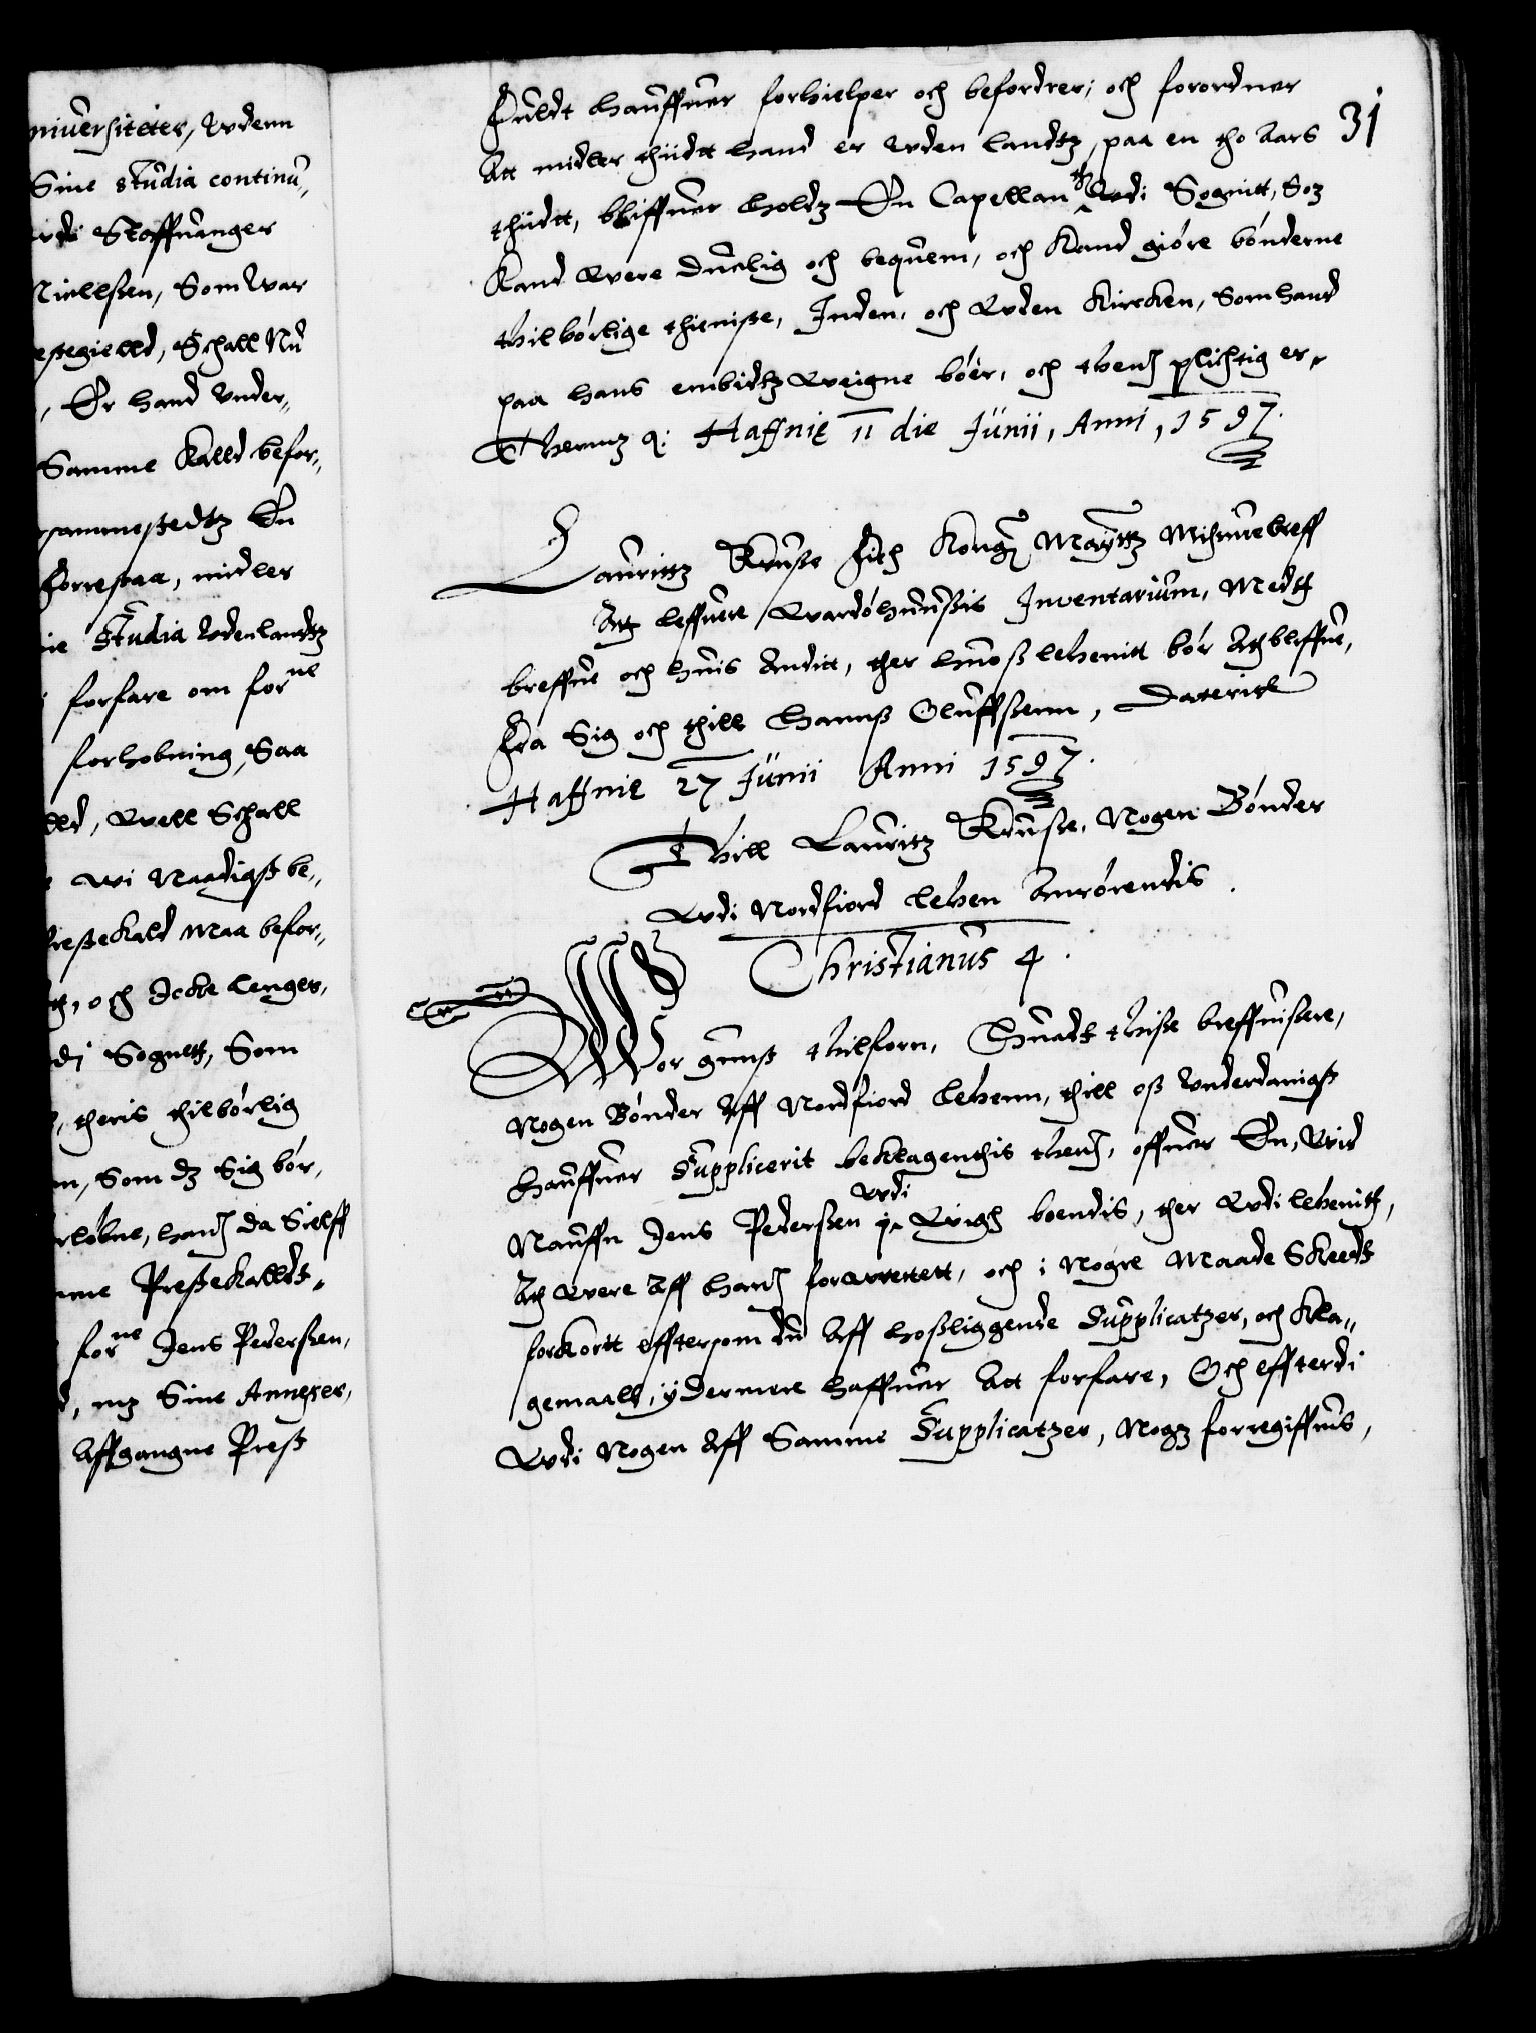 niuersiteter, Vdenn
Sine studia continu„
vdi Staffuanger
Nielßen, Som war
estegielld, Schall Nu
, Er hand Vnder„
Samme Kalld befor„
sammestedtz En
Forrestaa, midler
ie Studia Vdenlandtz
forfare om forne
forhobning, Saa
lld, Well Schall
wi Naadigst be„
PresteKald Maa befor„
och Icke lenger,
di Sognitt, Som
, theris thilbórlig
m, Som dz Sig bór,
rlóbne, hand da Sielff
mme PresteKalldt„
forne Jens Pederßen,
d, mz Sine Annexer,
Affgangne Prest
31
Huldt hauffuer forhielper och befordrer, och forordner
Att midler thiidtt hand er Vden landtz, paa en tho Aars
thiidtt, bliffuer holdz En Capellan th Vdi Sognitt, Som
Kand Were duelig och bequem, och Kand gióre bónderne
thilbórlige thieniste, Inden, och Vden Kircken, Som hand
paa hans embidtz Weigne bóer, och thend plichtig er,
Thermz &: Haffnię 11 die Junii, Anni, 1597.
Lauritz Kruse Fich Kong: Maytz Missiuebreff
Att leffuere Wardóhuußis Inventarium, Medt
breffue och huis Andit, ther hoß lehenitt bór Att bliffue,
Fra Sig och thill Hannß Oluffßenn, Daterit
Haffnię 27 Junii Anni 1597.
Thill Lauritz Kruse, Nogen Bónder
Vdi Nordfiord Lehen Anrórendis.
Christianus 4.
Wor gunst thilforn, Huadt thisse breffuisere,
Nogen Bónder Aff Nordfiord Lehenn, thill oß Vnderdanigst
hauffuer Supplicerit beklagenthis thend, offuer En, Wid
Nauffn Jens Pederßen vdi Wigh boendis, ther Vdi lehenitt,
Att Were Aff hand forarrettett, och i Nogre Maade Skeedt
forKortt Efftersom du Aff hoßliggende Supplicatzer, och Kla„
gemaall, ydermere haffuer Att forfare, Och effterdi
Vdi Nogen Aff Samme Supplicatzer, Nogz forregiffuis,